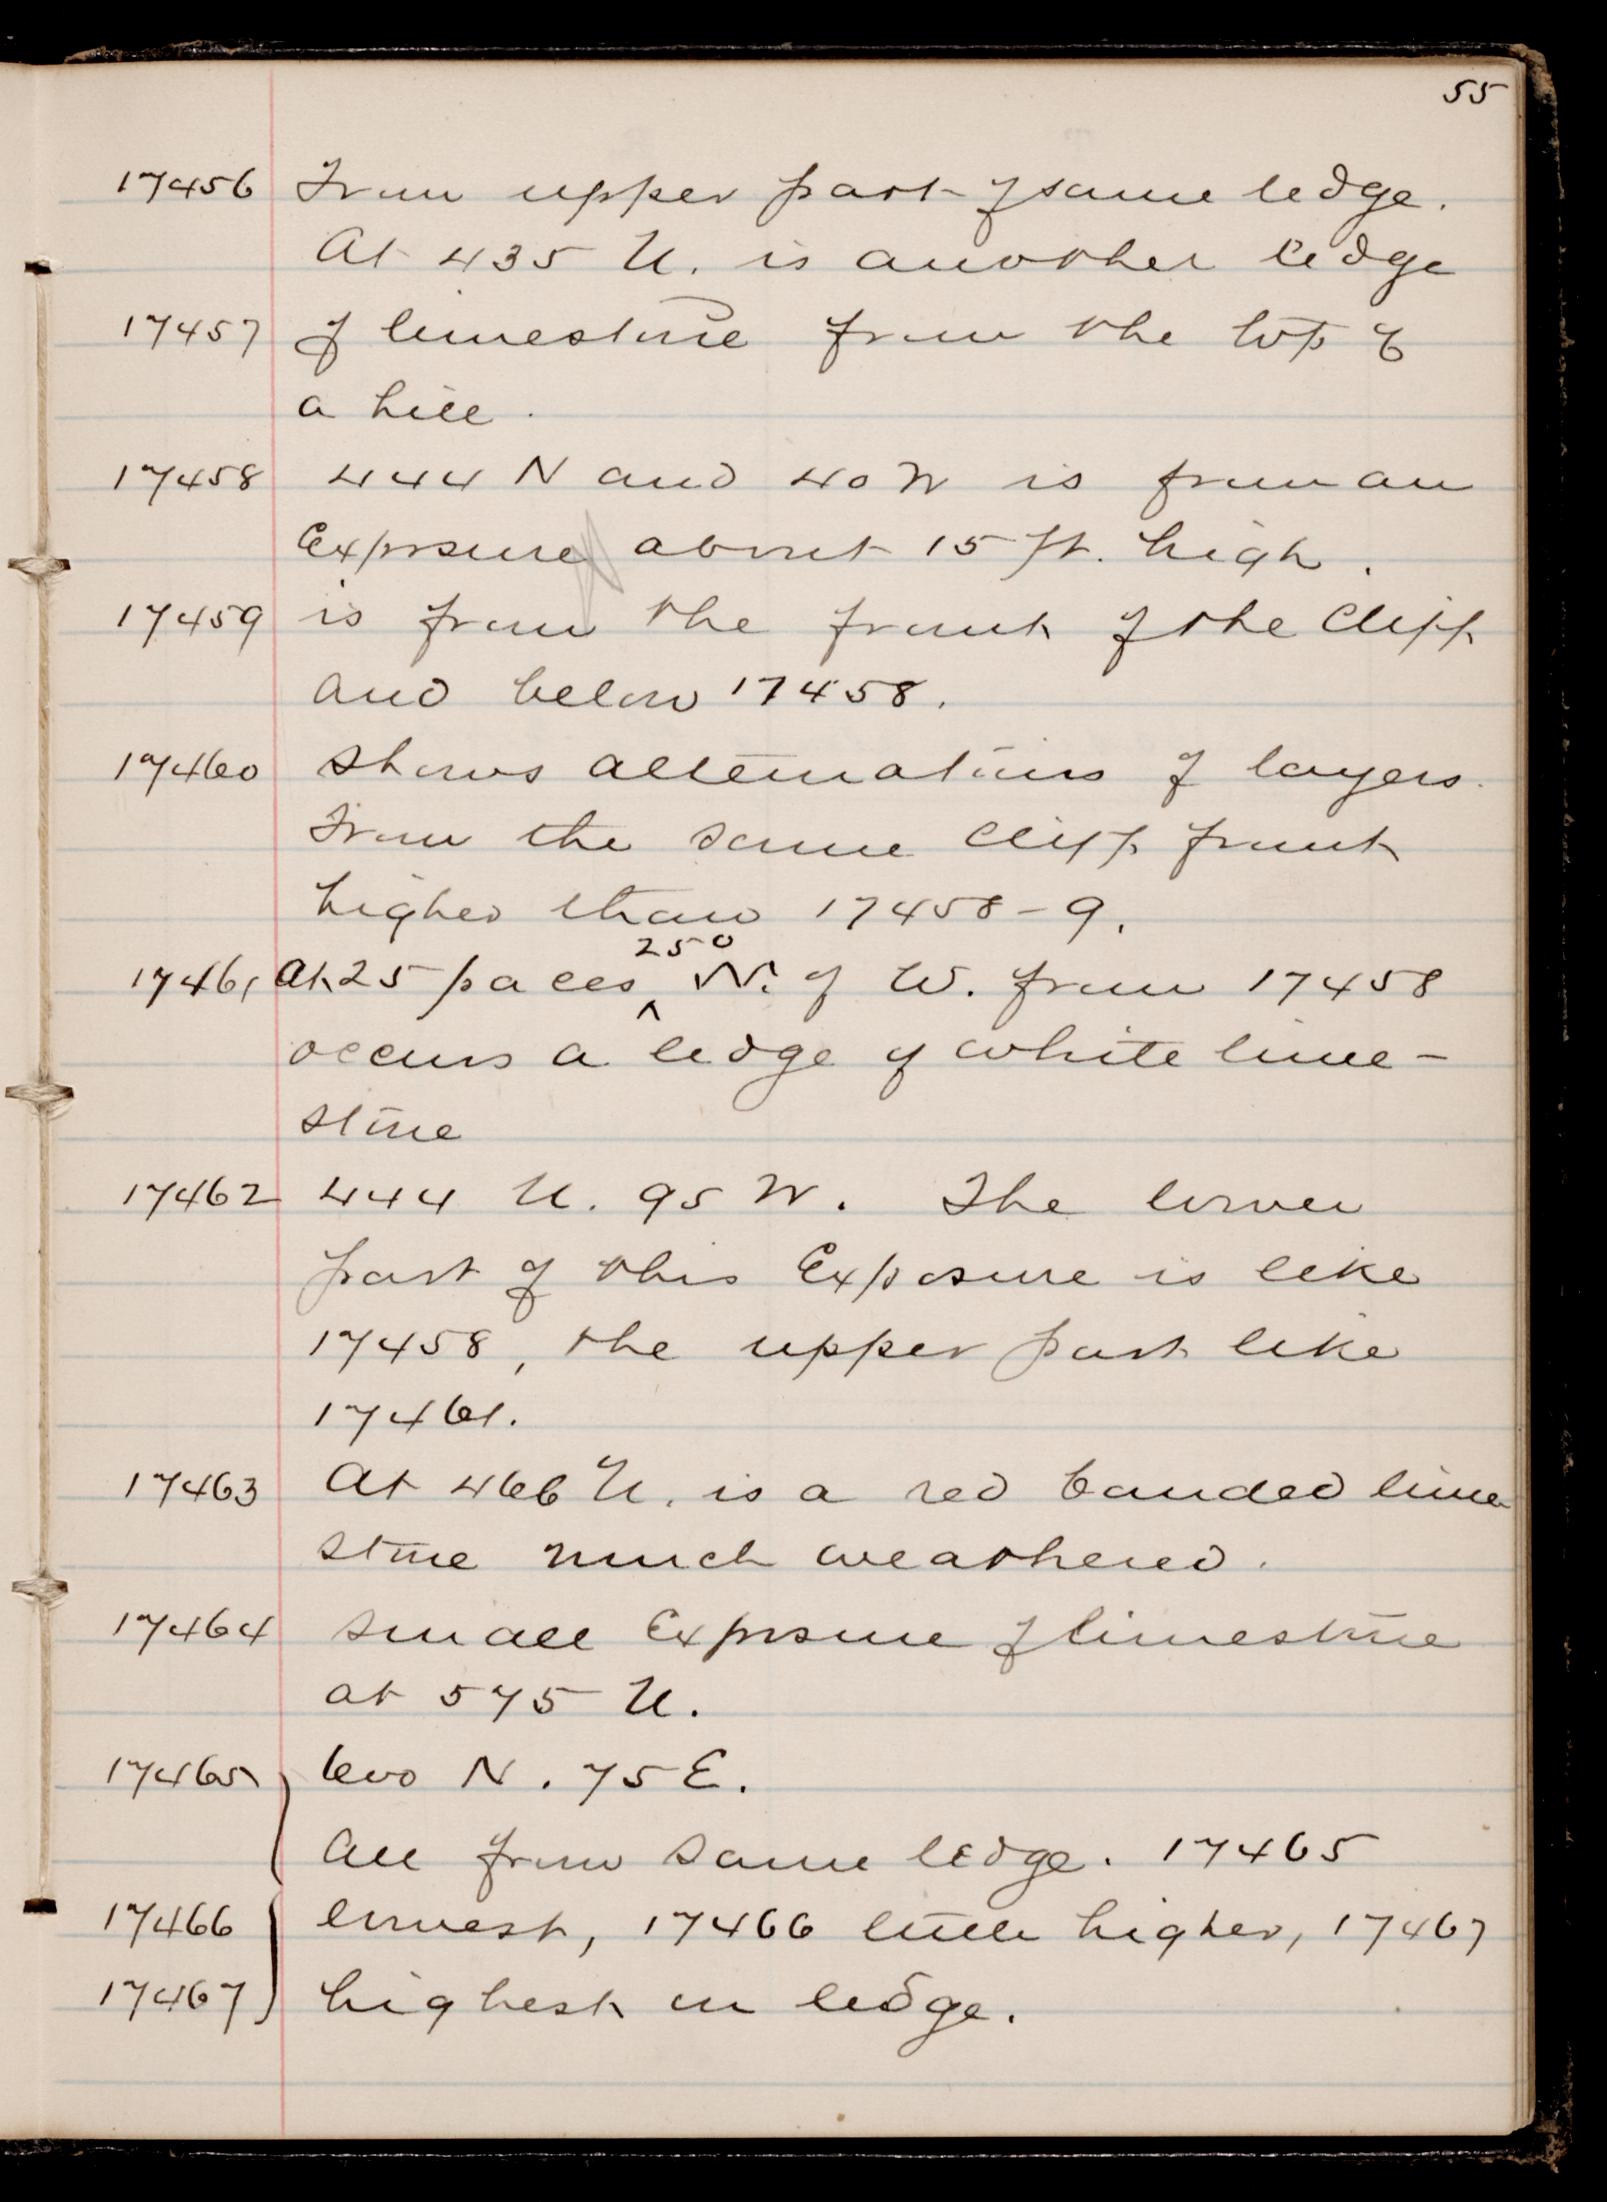 55
17456 From upper part of same ledge.
At 435 N. is another ledge
17457 of limestone from the top of
a hill.
17458 444 N and 40 W is from an
Exposure about 15 ft. high.
17459 is from the front of the Cliff
and below 17458.
17460 shows alternations of layers.
From the same Cliff front
higher than 17458-9.
250
17461 At 25 paces ^ N. of W. from 17458
occurs a ledge of white lime-
stone
17462 444 N. 95 W. The lower
part of this Exposure is like
17458, the upper part like
17461.
17463 At 466 N. is a red banded lime
stone much weathered.
17464 small Exposure of limestone
at 575 N.
17465 600 N. 75 E.
All from same ledge. 17465
17466 lowest, 17466 little higher, 17467
17467 highest in ledge.